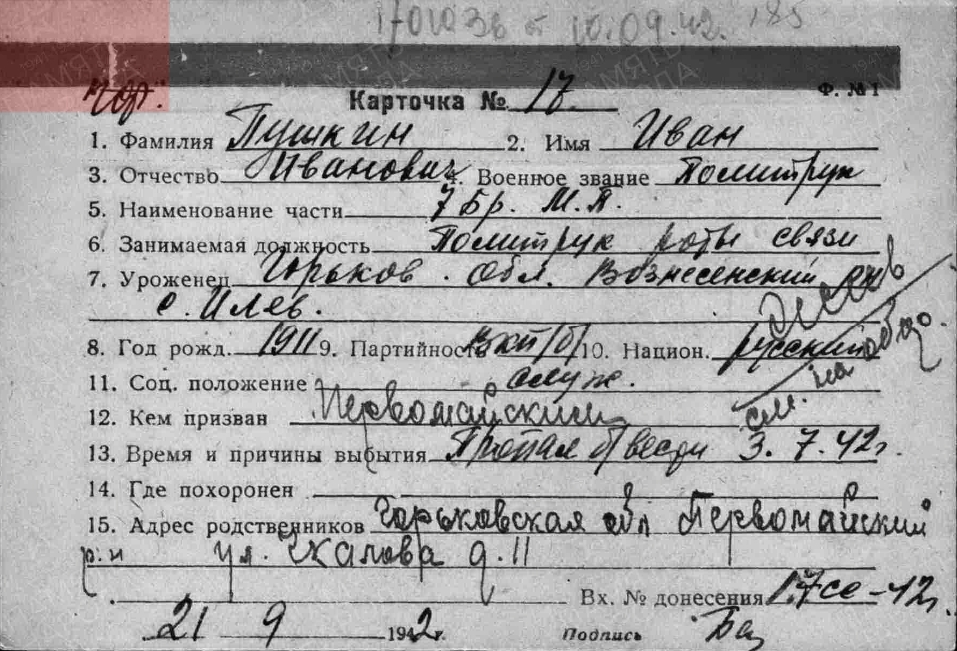 170103в от 10.09.42. 185
"Гор". Ф. № 1
Карточка № 17
1. Фамилия Пушкин 2. Имя Иван
3. Отчество Иванович 4. Военное звание Политрук
5. Наименование части 7 Бр. М.П.
6. Занимаемая должность Политрук роты связи
7. Уроженец Горьков. Обл. Вознесенский
с. Илев.
8. Год рожд. 1911 9. Партийность ВКП/б/ 10. Национ. русский
11. Соц. положение служ. см. на обо.
12. Кем призван Первомайским
13. Время и причины выбытия Пропал б/вести 3.7.42г.
14. Где похоронен
15. Адрес родственников Горьковская обл Первомайский
р-н ул. Чкалова д. 11
Вх. № донесения 17сс-42г.
21 9 1942г. Подпись